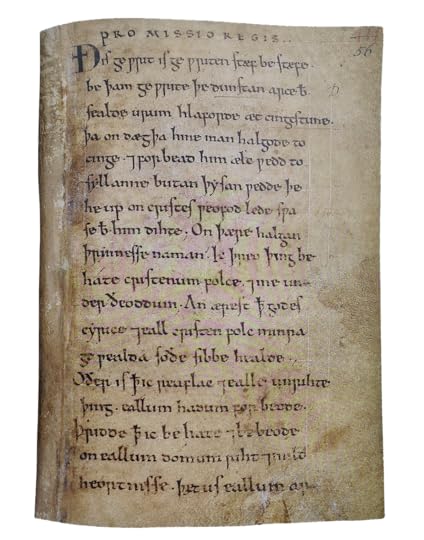 PROMISSIO REGIS.
Ðis geƿrit is geƿriten stæf be stæfe.
be þam geƿrite þe dunstan arceb̄
sealde urum hlaforde æt cingestune.
þa on dæg þa hine man halgode to
cinge. ⁊ forbead him ælc ƿedd to
syllanne butan þysan ƿedde þe
he up on cristes ƿeofod lede sƿa
se b̄ him dihte. On þære halgan
þrinnesse naman. Ic þreo þing be
hate cristenum folce. ⁊ me un
der ðeoddum. An ærest ꝥ godes
cyrice ⁊ eall cristen folc minra
geƿealda soðe sibbe healde.
Oðer is ꝥ ic reaflac ⁊ ealle unrihte
þing. eallum hadum forbeode.
Þridde ꝥ ic behate ⁊ bebeode
on eallum domum riht ⁊ mild
heortnisse. þæt us eallum ar
56